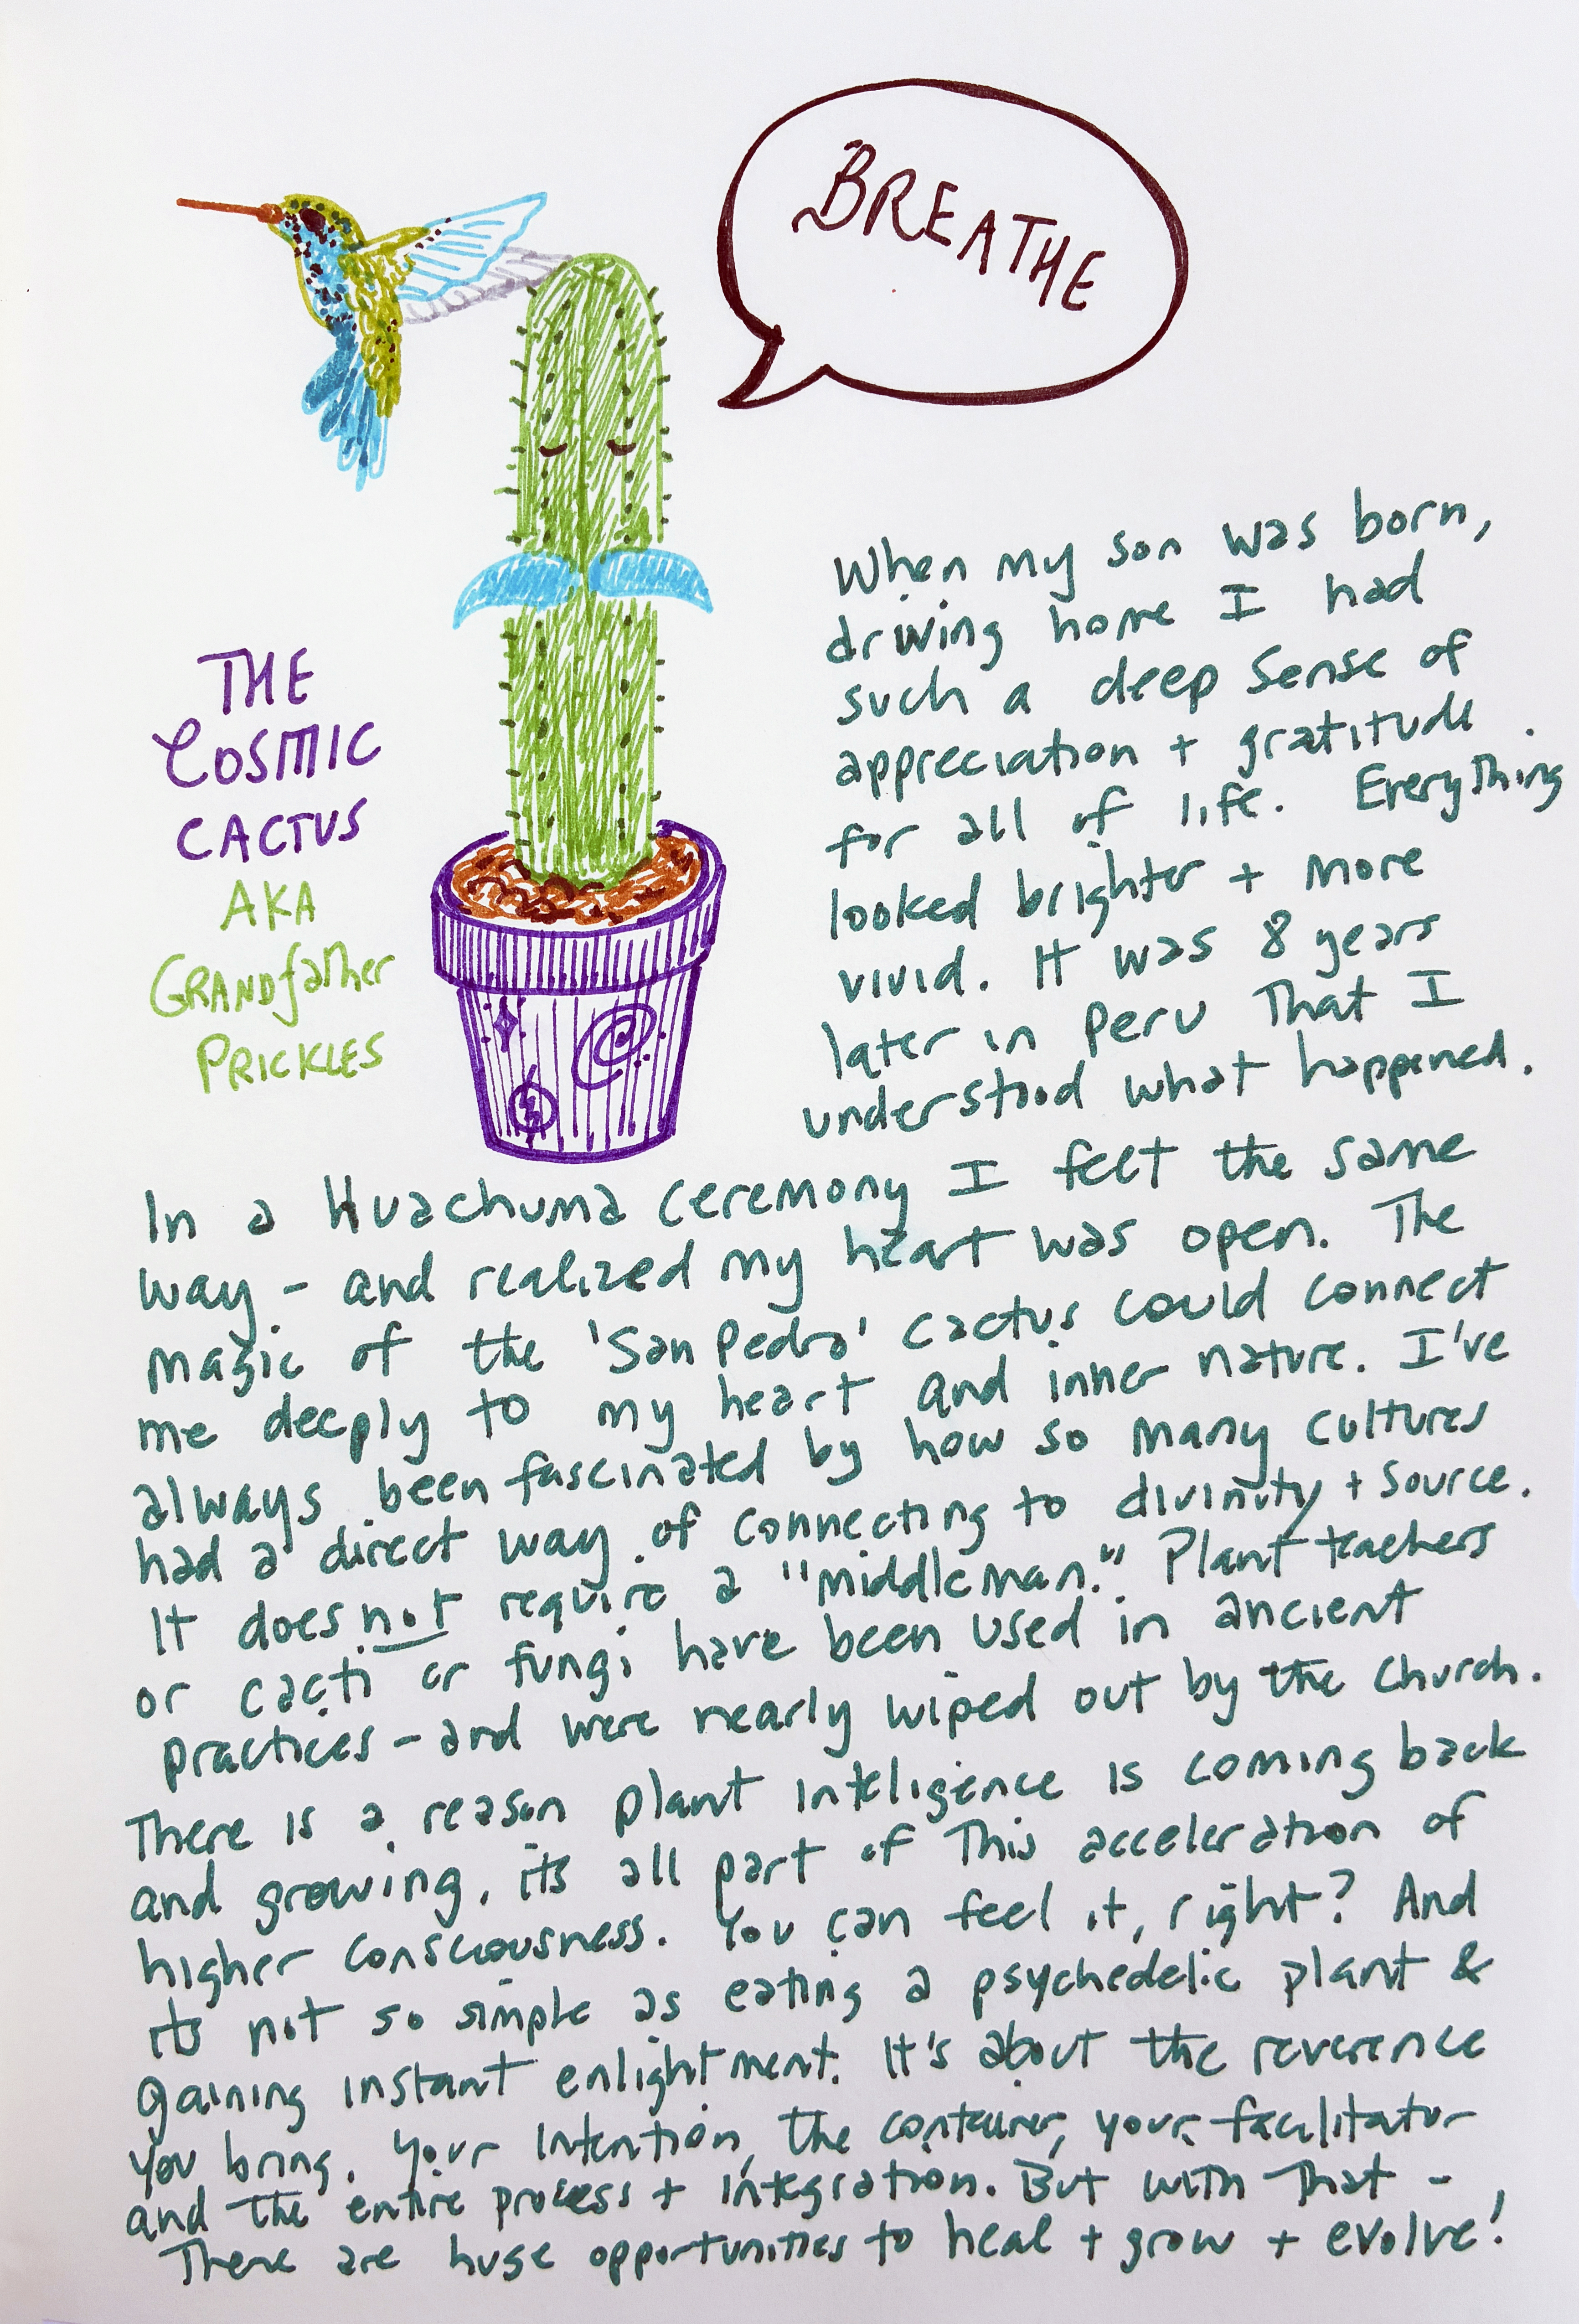 BREATHE
THE
COSMIC
CACTUS
AKA
GRANDfather
PRICKLES
When my son was born,
driving home I had
such a deep sense of
appreciation + gratitude
for all of life. Everything
looked brighter + more
vivid. It was 8 years
later in Peru that I
understood what happened.
In a Huachuma ceremony I felt the same
way - and realized my heart was open. The
magic of the 'San Pedro' cactus could connect
me deeply to my heart and inner nature. I've
always been fascinated by how so many cultures
had a direct way of connecting to divinity + source.
It does not require a "middleman." Plant teachers
or cacti or fungi have been used in ancient
practices - and were nearly wiped out by the Church.
There is a reason plant inteligence is coming back
and growing, its all part of this acceleration of
higher consciousness. You can feel it, right? And
its not so simple as eating a psychedelic plant &
gaining instant enlightment. It's about the reverence
you bring. Your intention, the container, your facilitator
and the entire process + integration. But with that -
There are huge opportunities to heal + grow + evolve!